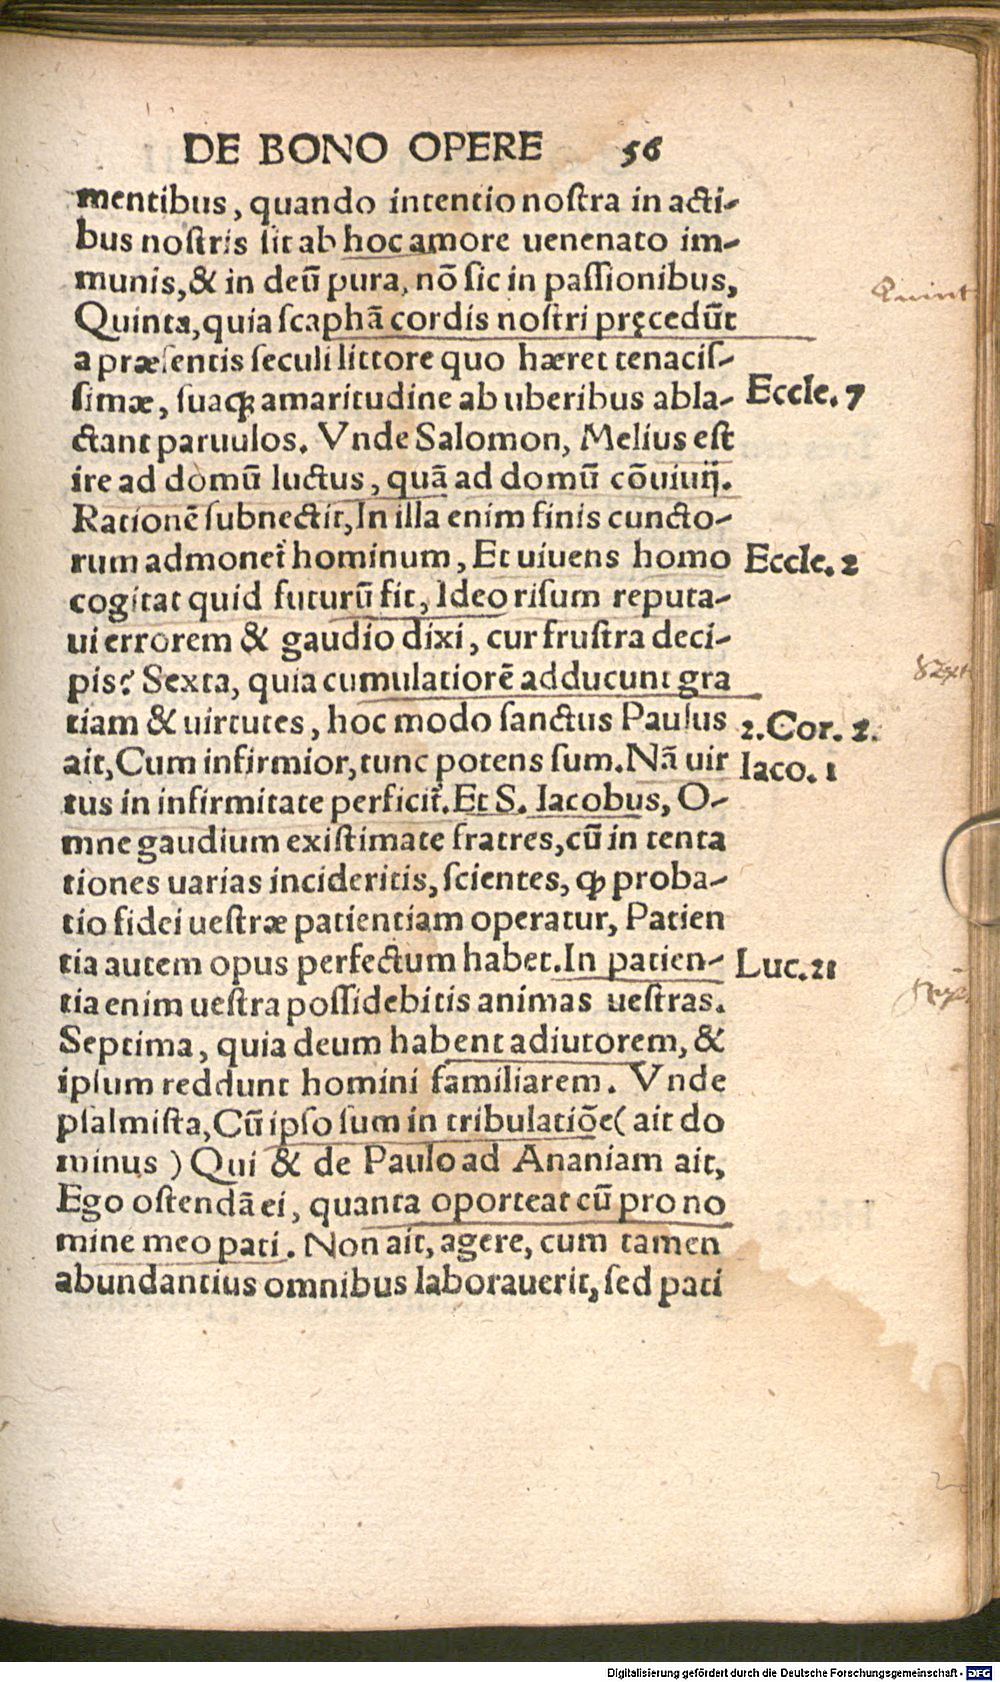 DE BONO OPERE 56
mentibus, quando intentio nostra in acti-
bus nostris sit ab hoc amore uenenato im-
munis, & in deũ pura, nõ sic in passionibus,
Quinta, quia scaphã cordis nostri pręcedũt
a præsentis seculi littore quo hæret tenacis-
simæ, suaqꝫ amaritudine ab uberibus abla-
ctant paruulos. Vnde Salomon, Melius est
ire ad domũ luctus, quã ad domũ cõuiuij.
Rationẽ subnectit, In illa enim finis cuncto-
rum admonet̃ hominum, Et uiuens homo
cogitat quid futurũ sit, Ideo risum reputa-
ui errorem & gaudio dixi, cur frustra deci-
pis? Sexta, quia cumulatiorẽ adducunt gra
tiam & uirtutes, hoc modo sanctus Paulus
ait, Cum infirmior, tunc potens sum. Nã uir
tus in infirmitate perficit̃. Et S. Iacobus, O-
mne gaudium existimate fratres, cũ in tenta
tiones uarias incideritis, scientes, ꝙ proba-
tio fidei uestræ patientiam operatur, Patien
tia autem opus perfectum habet. In patien-
tia enim uestra possidebitis animas uestras.
Septima, quia deum habent adiutorem, &
ipsum reddunt homini familiarem. Vnde
psalmista, Cũ ipso sum in tribulatiõe ( ait do
minus ) Qui & de Paulo ad Ananiam ait,
Ego ostendã ei, quanta oporteat cũ pro no
mine meo pati. Non ait, agere, cum tamen
abundantius omnibus laborauerit, sed pati
Quint
Eccle. 7
Eccle. 2
Sext
2. Cor. 2.
Iaco. 1
Luc. 21
Digitalisierung gefördert durch die Deutsche Forschungsgemeinschaft - DFG